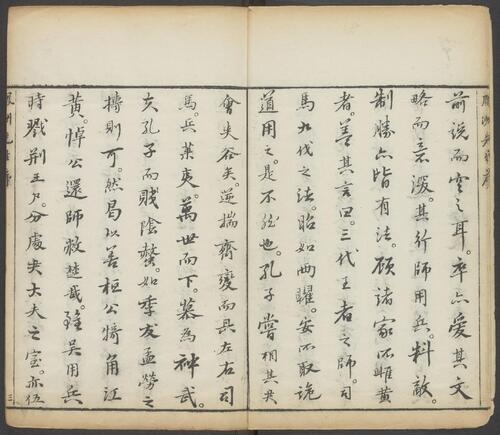 前説而空之耳。率亦愛其文
略而意深。其行師用兵。料敵
制勝。亦皆有法。顧諸家所雌黄
者。善其言曰。三代王者之師。司
馬九伐之法。昭如兩曜。安所取詭
道用之。是不然也。孔子嘗相其君
會夾谷矣。逆揣齊變而具左右司
馬。兵萊夷。萬世而下。慕為神武。
夫孔子而賊陰螯。如季友孟勞之
摶則可。然曷以善桓公犄角江
黄。悼公還師救楚哉。雖吴用兵
時戮荆王尸。分處夫大夫之室。亦伍
三